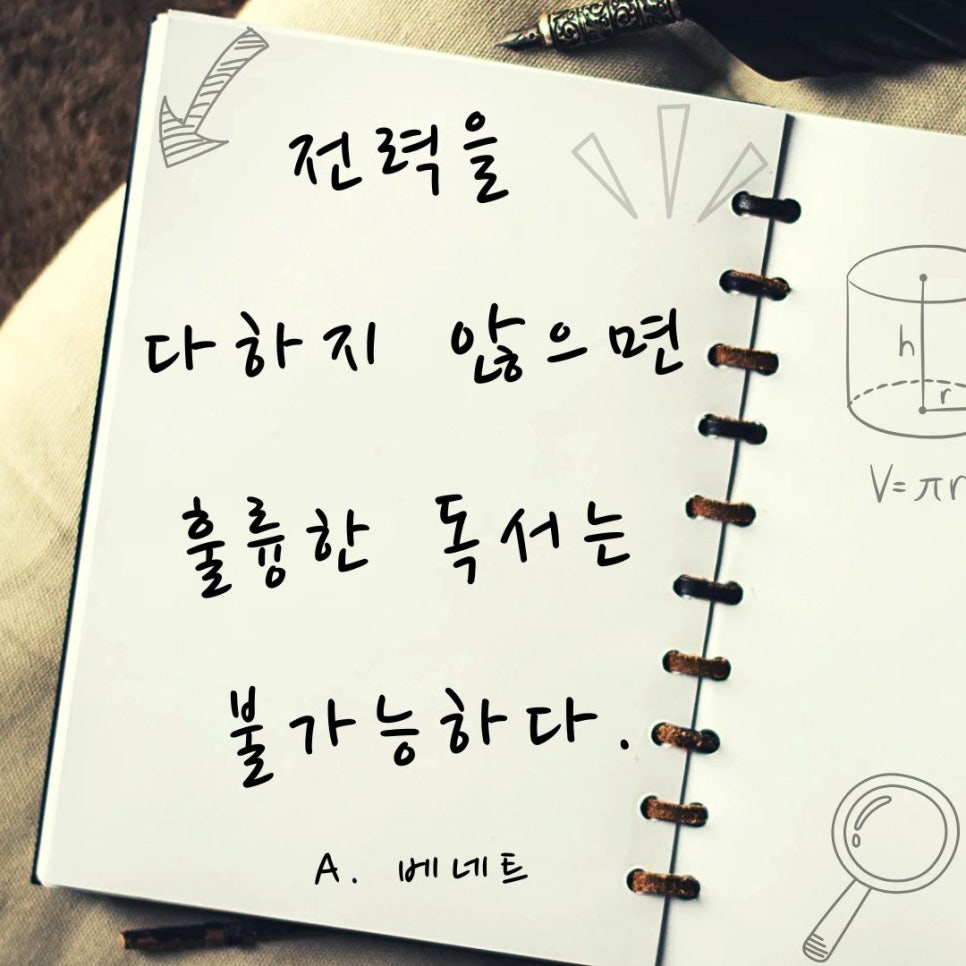 전력을
다하지 않으면
훌륭한 독서는
불가능하다.
A. 베네트
h
r
V=πr